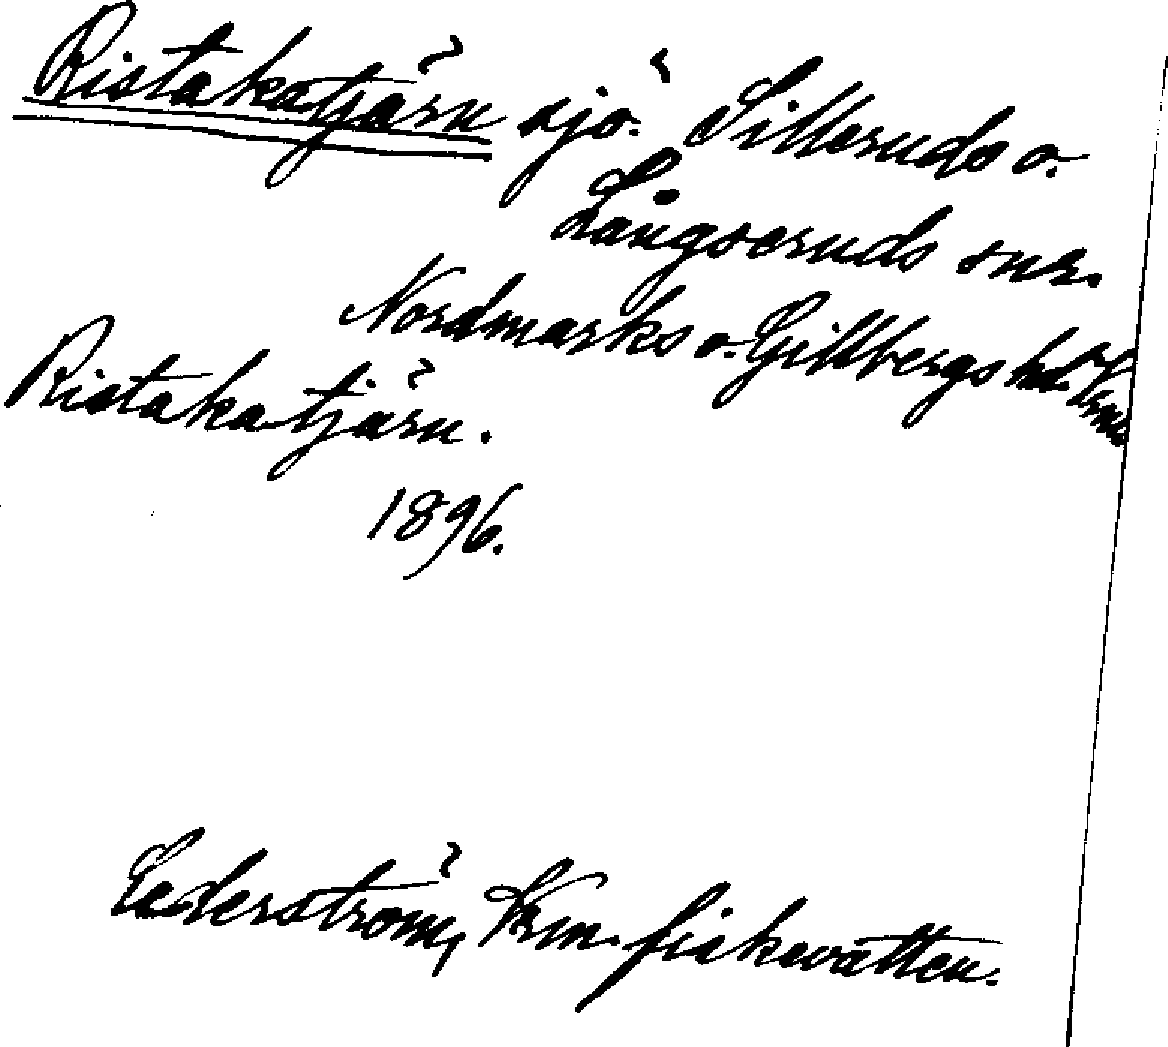 Ristakatjärn sjö. Silleruds o.
Långseruds snr.
Nordmarks o. Gillbergs hd. Vrml.
Ristakatjärn.
1896.
Cederström, Vrm. fiskevatten.